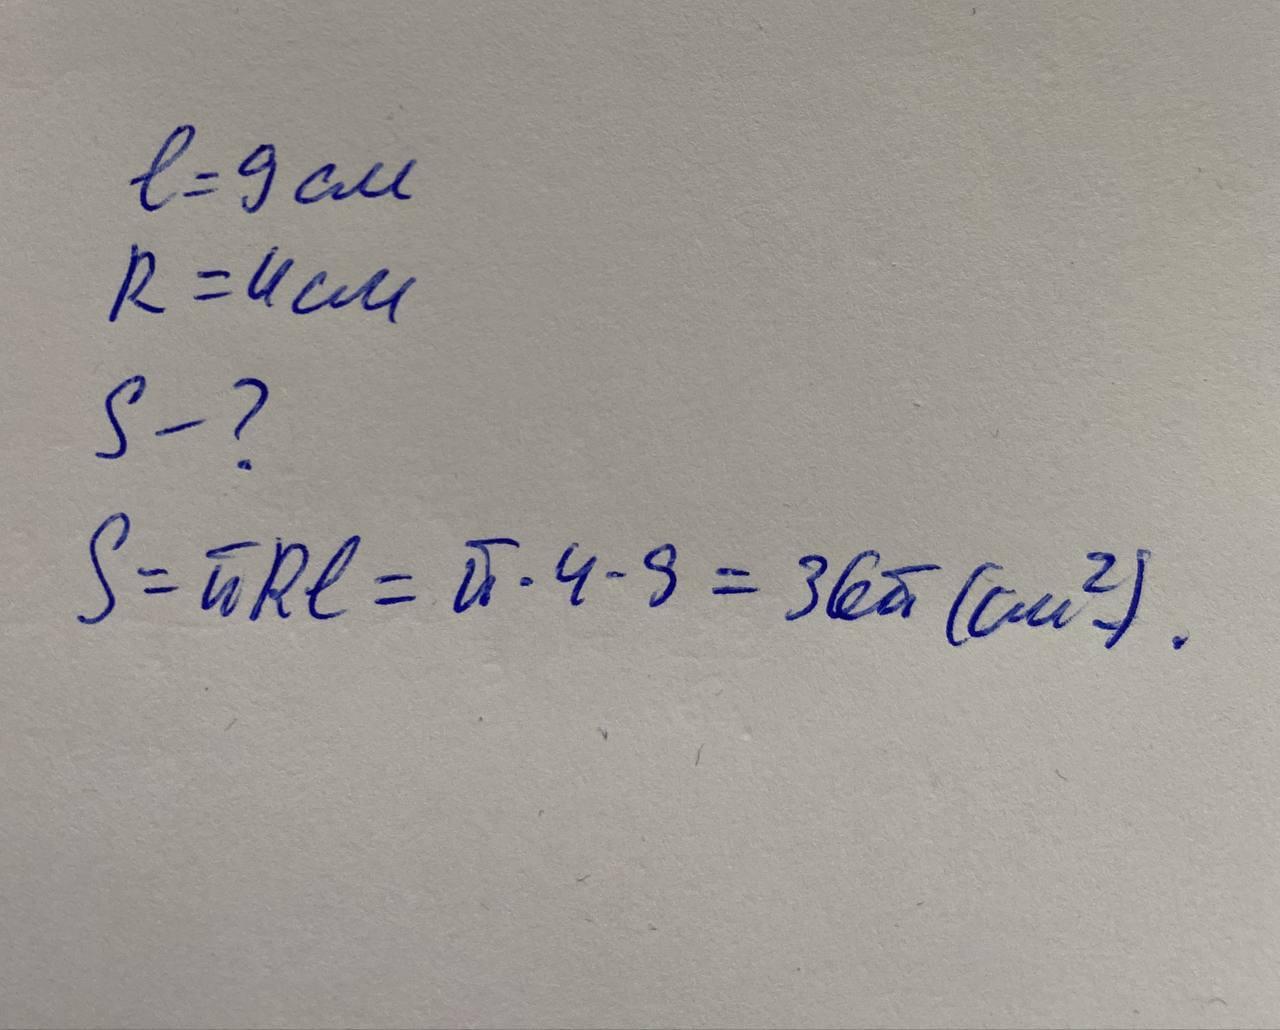 l=9 см
R=4 см
S-?
S=πRl=π·4·9=36π(см²).